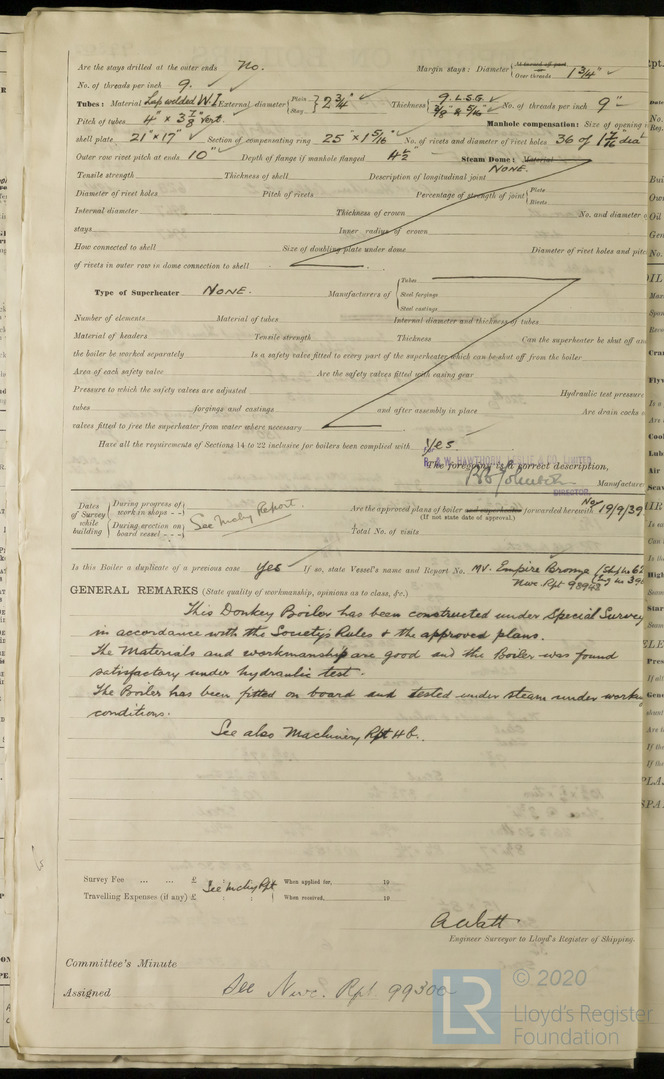 Are the stays drilled at the outer ends No. Margin stays: Diameter { At turned off part / Over threads 1 3/4"
No. of threads per inch 9.
Tubes: Material Lap welded W.I External diameter { Plain / Stay } 2 3/4" Thickness { 9. L.S.G. / 3/8 & 5/16" No. of threads per inch 9
Pitch of tubes 4" × 3 7/8" Vert. Manhole compensation: Size of opening i
shell plate 21" × 17" Section of compensating ring 25" × 1 5/16" No. of rivets and diameter of rivet holes 36 of 1 7/16" dia
Outer row rivet pitch at ends 10" Depth of flange if manhole flanged 4 1/2" Steam Dome: Material NONE.
Tensile strength Thickness of shell Description of longitudinal joint
Diameter of rivet holes Pitch of rivets Percentage of strength of joint { Plate / Rivets
Internal diameter Thickness of crown No. and diameter o
stays Inner radius of crown
How connected to shell Size of doubling plate under dome Diameter of rivet holes and pitc
of rivets in outer row in dome connection to shell
Type of Superheater NONE. Manufacturers of { Tubes / Steel forgings / Steel castings
Number of elements Material of tubes Internal diameter and thickness of tubes
Material of headers Tensile strength Thickness Can the superheater be shut off an
the boiler be worked separately Is a safety valve fitted to every part of the superheater which can be shut off from the boiler
Area of each safety valve Are the safety valves fitted with easing gear
Pressure to which the safety valves are adjusted Hydraulic test pressure
tubes forgings and castings and after assembly in place Are drain cocks o
valves fitted to free the superheater from water where necessary
Have all the requirements of Sections 14 to 22 inclusive for boilers been complied with Yes.
R. & W. HAWTHORN, LESLIE & CO. LIMITED
The foregoing is a correct description,
Manufacture
DIRECTOR
Dates of Survey while building { During progress of work in shops - - / During erection on board vessel - - - } See Mchy Report. Are the approved plans of boiler and superheater forwarded herewith No 19/9/39
(If not state date of approval.)
Total No. of visits
Is this Boiler a duplicate of a previous case Yes If so, state Vessel's name and Report No. MV. Empire Bronze
Nwc. Rpt 98943
GENERAL REMARKS (State quality of workmanship, opinions as to class, &c.)
This Donkey Boiler has been constructed under Special Survey
in accordance with the Society's Rules & the approved plans.
The Materials and workmanship are good and the Boiler was found
satisfactory under hydraulic test.
The Boiler has been fitted on board and tested under steam under workg
conditions.
See also Machinery Rpt 4b.
Survey Fee ... ... £ See Mchy Rpt When applied for, 19
Travelling Expenses (if any) £ : : When received, 19
A Watt.
Engineer Surveyor to Lloyd's Register of Shipping.
Committee's Minute
Assigned See Nwc. Rpt 99300
LR © 2020
Lloyd's Register
Foundation